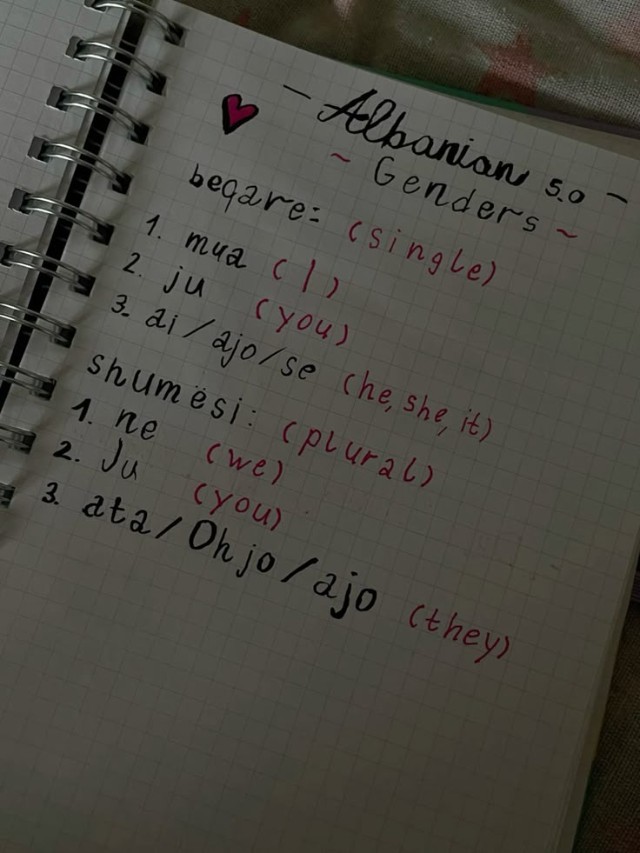 - Albanian 5.0 -
~ Genders ~
beqare: (single)
1. mua (I)
2. ju (you)
3. ai/ajo/se (he, she, it)
shumësi: (plural)
1. ne (we)
2. Ju (you)
3. ata/Ohjo/ajo (they)